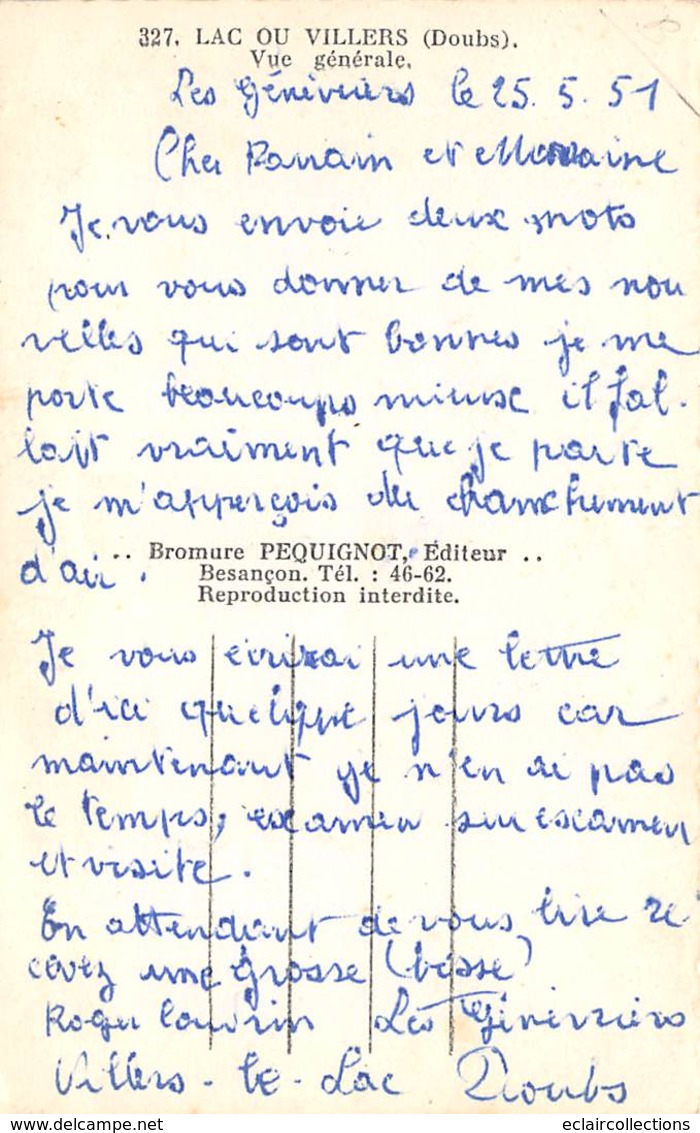 327. LAC OU VILLERS (Doubs).
Vue générale.
Les Géneviers le 25. 5. 51
Cher Parrain et Marraine
Je vous envoie deux mots
pour vous donner de mes nou
velles qui sont bonnes je me
porte beaucoups mieux il fal-
lait vraiment que je parte
je m'apperçois du chanchement
d'air.
.. Bromure PEQUIGNOT, Éditeur ..
Besançon. Tél. : 46-62.
Reproduction interdite.
Je vous écrirai une lettre
d'ici quelque jours car
maintenant je n'en ai pas
le temps, examen sur examen
et visite.
En attendant de vous lire re
cevez une grosse (bisse)
Roger Les Génévriers
Villers-le-Lac Doubs
eclaircollections